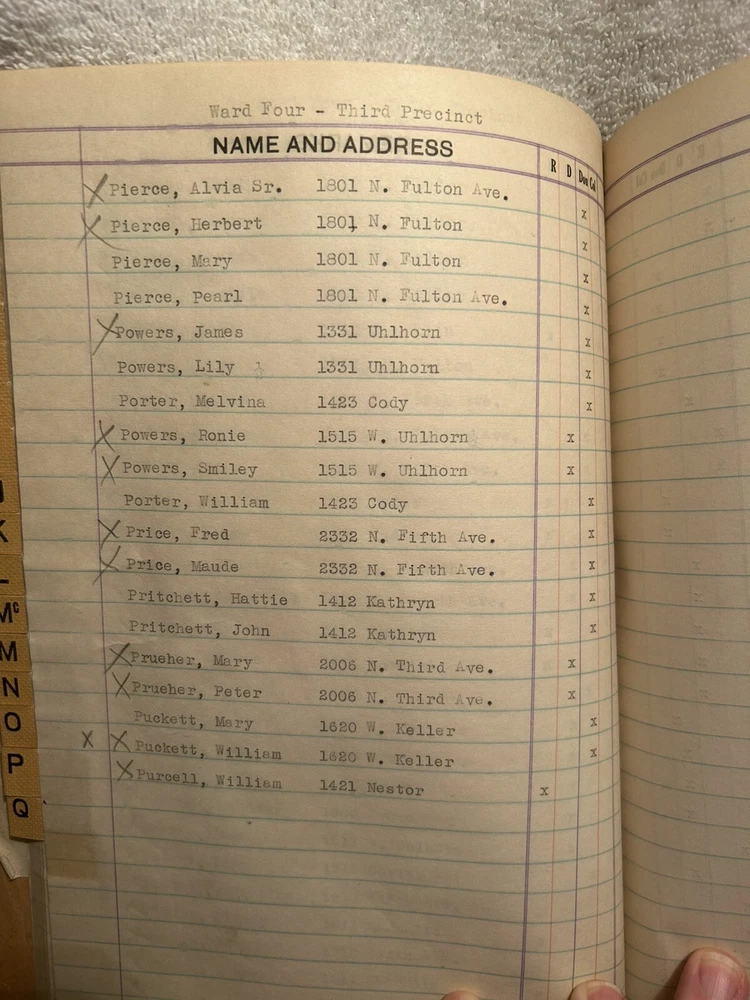 Ward Four - Third Precinct
NAME AND ADDRESS R D Don Co
X Pierce, Alvia Sr. 1801 N. Fulton Ave. x
X Pierce, Herbert 1801 N. Fulton x
Pierce, Mary 1801 N. Fulton x
Pierce, Pearl 1801 N. Fulton Ave. x
X Powers, James 1331 Uhlhorn x
Powers, Lily 1331 Uhlhorn x
Porter, Melvina 1423 Cody x
X Powers, Ronie 1515 W. Uhlhorn x
X Powers, Smiley 1515 W. Uhlhorn x
Porter, William 1423 Cody x
X Price, Fred 2332 N. Fifth Ave. x
X Price, Maude 2332 N. Fifth Ave. x
Pritchett, Hattie 1412 Kathryn x
Pritchett, John 1412 Kathryn x
X Prueher, Mary 2006 N. Third Ave. x
X Prueher, Peter 2006 N. Third Ave. x
Puckett, Mary 1620 W. Keller x
X X Puckett, William 1620 W. Keller x
X Purcell, William 1421 Nestor x
K
L
Mc
M
N
O
P
Q